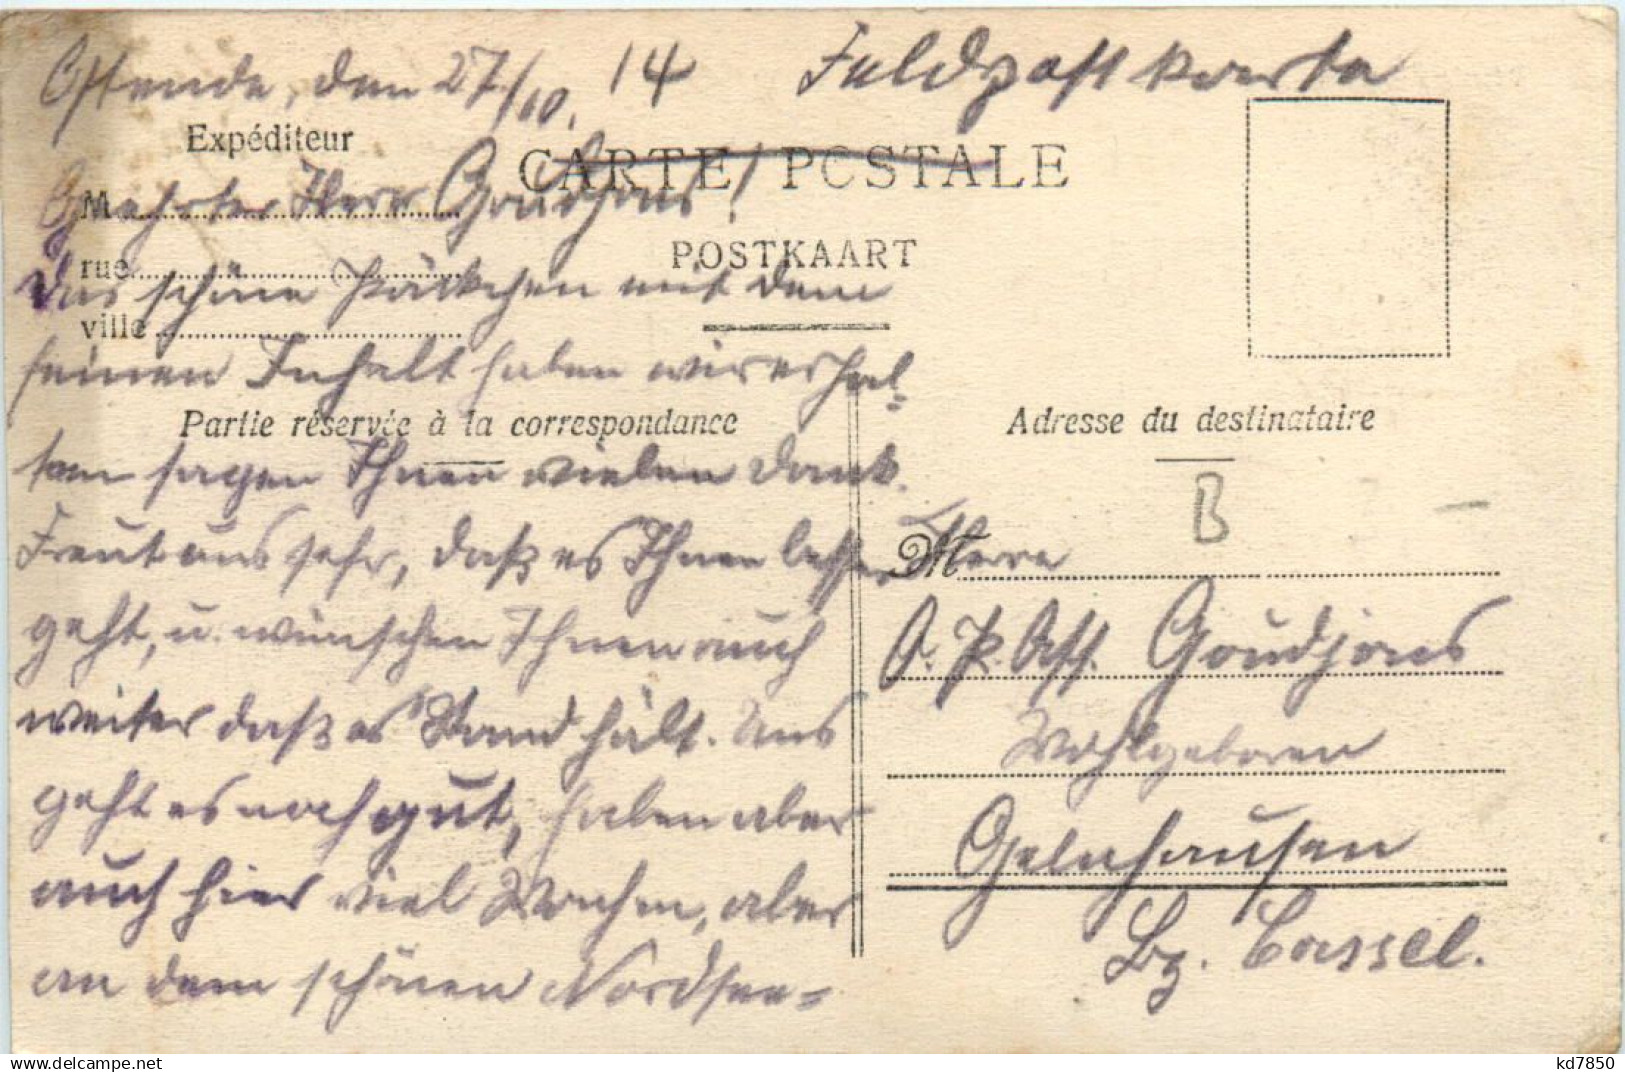 Ostende, den 27/10. 14 Feldpostkarte
Expéditeur
CARTE POSTALE
M
Geehrter Herr Goudjons!
POSTKAART
rue
Das schöne Päckchen mit dem
ville
feinen Inhalt haben wir erhal-
Partie réservée à la correspondance
ten sagen Ihnen vielen Dank.
Freut uns sehr, daß es Ihnen besser
geht, u. wünschen Ihnen auch
weiter daß es Stand hält. Uns
geht es noch gut, haben aber
auch hier viel Wachen, aber
an dem schönen Nordsee=
Adresse du destinataire
B
M Herrn
O. P. Ass. Goudjons
Wohlgeboren
Gelnhausen
Bz. Cassel.
https://www.delcampe.net
kd7850